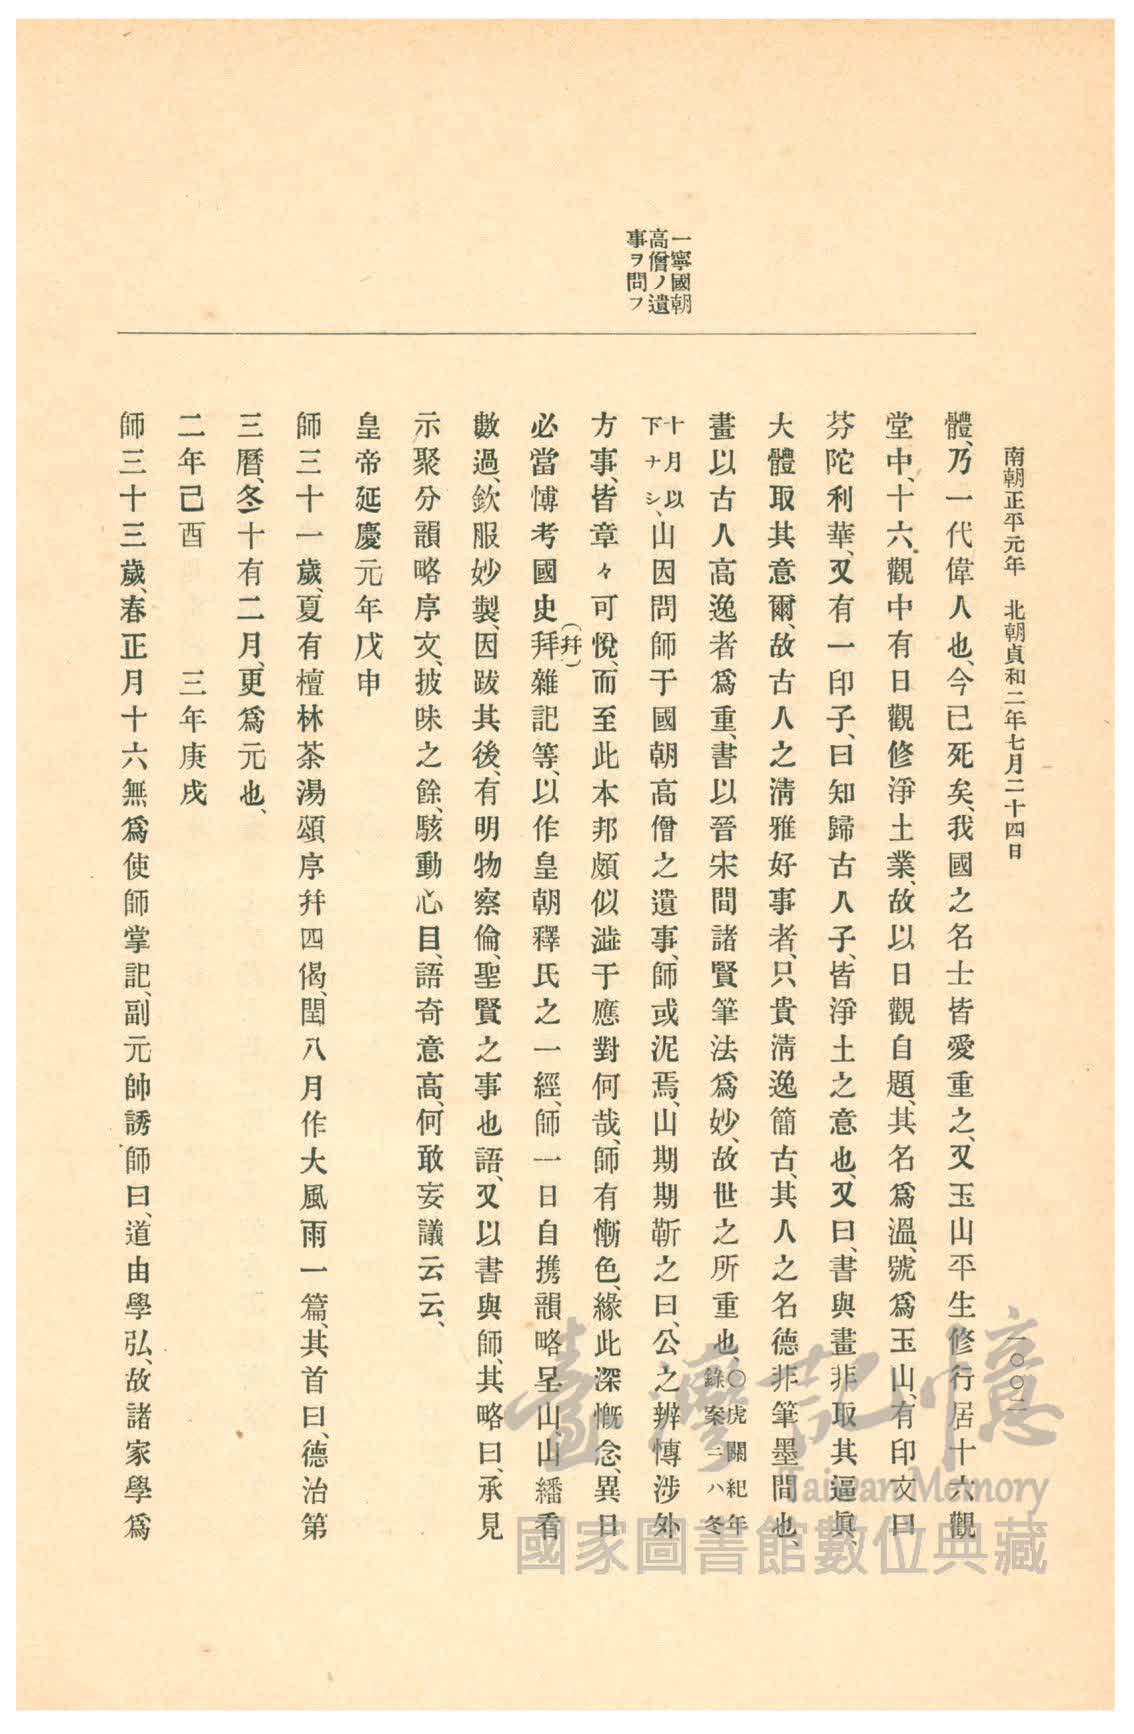 南朝正平元年　北朝貞和二年七月二十四日
一〇〇二
一寧國朝
高僧ノ遺
事ヲ問フ
體、乃一代偉人也、今已死矣、我國之名士皆愛重之、又玉山平生修行居十六觀
堂中、十六觀中有日觀修淨土業、故以日觀自題、其名爲溫、號爲玉山、有印文曰
芬陀利華、又有一印子、曰知歸古人子、皆淨土之意也、又曰、書與畫非取其逼眞、
大體取其意爾、故古人之淸雅好事者、只貴淸逸簡古、其人之名德非筆墨間也、
畫以古人高逸者爲重、書以晉宋間諸賢筆法爲妙、故世之所重也、〇虎關紀年錄案ニハ冬
十月以下ナシ、山因問師于國朝高僧之遺事、師或泥焉、山期期靳之曰、公之辨愽涉外
方事、皆章々可悅、而至此本邦頗似澁于應對何哉、師有慚色、緣此深慨念、異日
必當愽考國史拜(幷)雜記等、以作皇朝釋氏之一經、師一日自携韻略呈山山繙看
數過、欽服妙製、因跋其後、有明物察倫、聖賢之事也語、又以書與師、其略曰、承見
示聚分韻略序文、披味之餘、駭動心目、語奇意高、何敢妄議云云、
皇帝延慶元年戊申
師三十一歲、夏有檀林茶湯頌、序幷四偈、閏八月作大風雨一篇、其首曰、德治第
三曆、冬十有二月、更爲元也、
二年己酉　　　三年庚戌
師三十三歲、春正月十六無爲使師掌記、副元帥誘師曰、道由學弘、故諸家學爲
臺灣記憶
Taiwan Memory
國家圖書館數位典藏